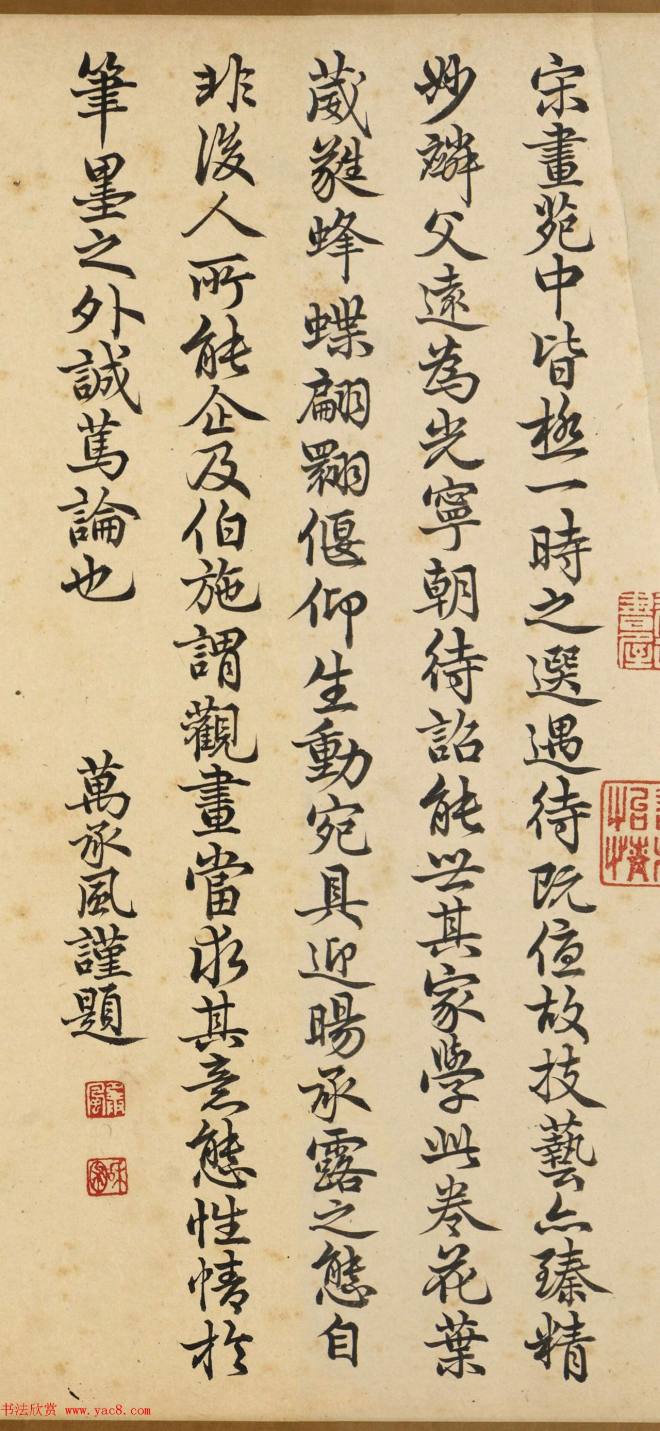 宋畫苑中皆極一時之選遇待既優故技藝亦臻精
妙麟父遠為光寧朝待詔能世其家學此卷花葉
葳蕤蜂蝶翩翾偃仰生動宛具迎暘承露之態自
非後人所能企及伯施謂觀畫當求其意態性情於
筆墨之外誠篤論也
萬承風謹題
承風
书法欣赏 www.yac8.com